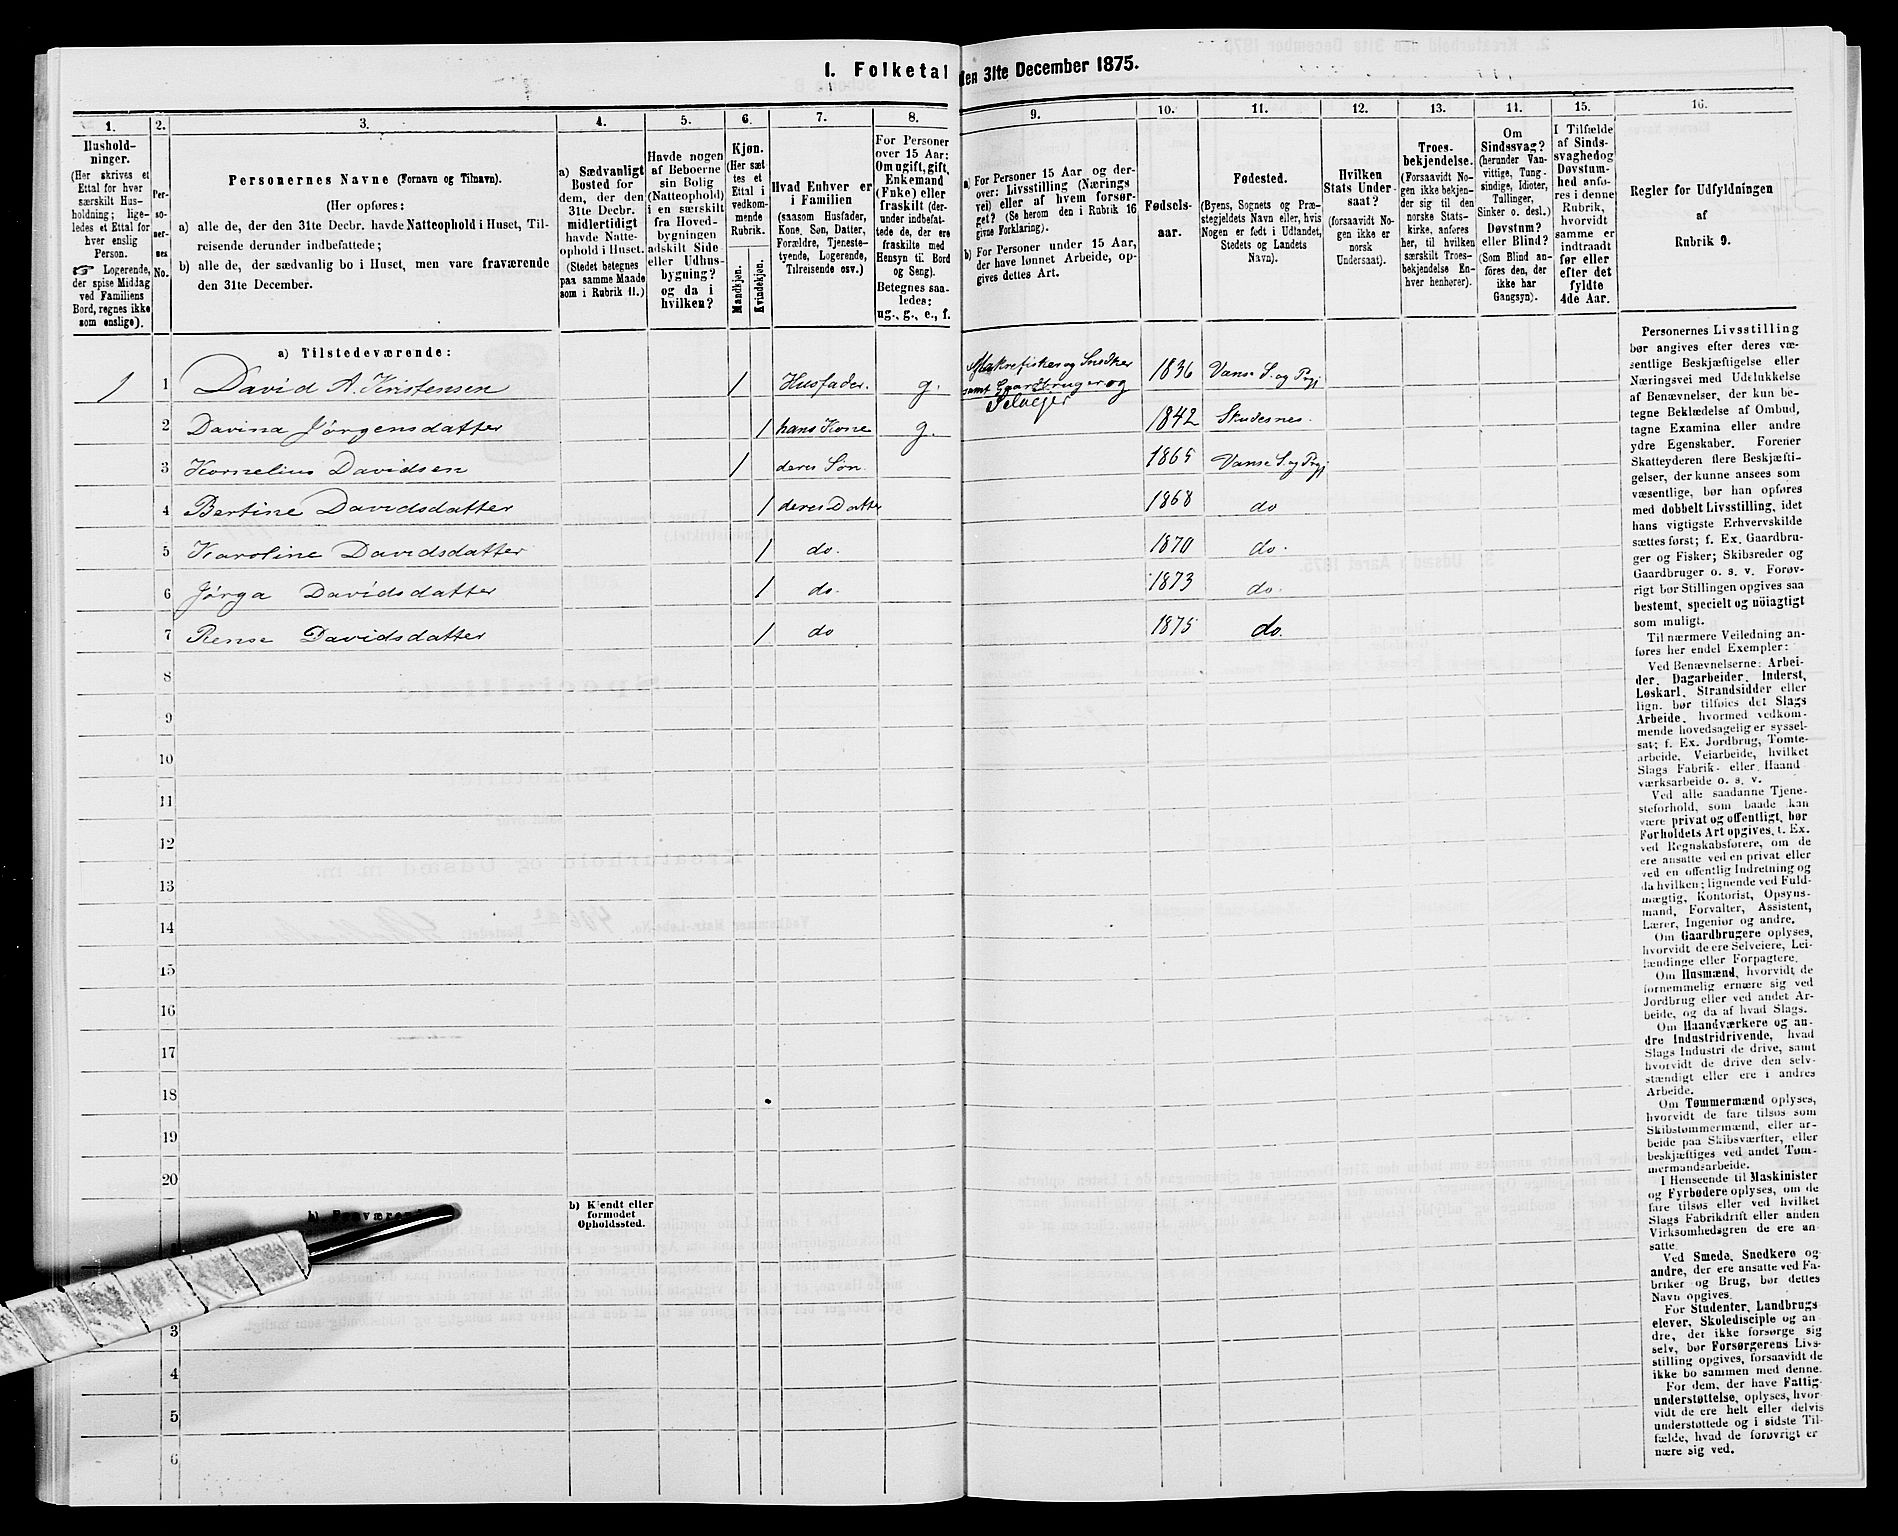 1. Folketal den 31te December 1875.
1.
Hushold-
ninger.
(Her skrives et
Ettal for hver
særskilt Hus-
holdning; lige-
ledes et Ettal for
hver enslig
Person.
☞ Logerende,
der spise Middag
ved Familiens
Bord, regnes ikke
som enslige).
2.
Per-
so-
ner-
nes
No.
3.
Personernes Navne (Fornavn og Tilnavn).
(Her opføres:
a) alle de, der den 31te Decbr. havde Natteophold i Huset, Til-
reisende derunder indbefattede;
b) alle de, der sædvanlig bo i Huset, men vare fraværende
den 31te December.
4.
a) Sædvanligt
Bosted for
dem, der den
31te Decbr.
midlertidigt
havde Natte-
ophold i Huset.
(Stedet betegnes
paa samme Maade
som i Rubrik 11.)
5.
Havde nogen
af Beboerne
sin Bolig
(Natteophold)
i en særskilt
fra Hoved-
bygningen
adskilt Side
eller Udhus-
bygning?
og da i
hvilken?
6.
Kjøn.
(Her sæt
tes et
Ettal i
vedkom-
mende
Rubrik.
Mandkjøn.
Kvindekjøn.
7.
Hvad Enhver er
i Familien
(saasom Husfader,
Kone, Søn, Datter,
Forældre, Tjeneste-
tyende, Logerende,
Tilreisende osv.)
8.
For Personer
over 15 Aar:
Om ugift, gift,
Enkemand
(Enke) eller
fraskilt (der-
under indbefat-
tede de, der ere
fraskilte med
Hensyn til Bord
og Seng).
Betegnes saa-
ledes:
ug., g., e., f.
9.
a) For Personer 15 Aar og der-
over: Livsstilling (Nærings
vei) eller af hvem forsør-
get? (Se herom den i Rubrik 16
givne Forklaring).
b) For Personer under 15 Aar,
der have lønnet Arbeide, op-
gives dettes Art.
10.
Fødsels-
aar.
11.
Fødested.
(Byens, Sognets og Præ-
stegjeldets Navn eller, hvis
Nogen er født i Udlandet,
Stedets og Landets
Navn).
12.
Hvilken
Stats Under-
saat?
(forsaavidt No-
gen ikke er
norsk
Undersaat).
13.
Troes-
bekjendelse.
(Forsaavidt No-
gen ikke bekjen-
der sig til den
norske Stats-
kirke, anføres
her, til hvilken
særskilt Troes-
bekjendelse En-
hver henhører).
11.
Om
Sindssvag?
(herunder Van-
vittige, Tung-
sindige, Idioter,
Tullinger,
Sinker o. desl.)
Døvstum?
eller Blind?
(Som Blind an-
føres den, der
ikke har
Gangsyn).
15.
I Tilfælde
af Sinds-
svaghed og
Døvstum-
hed anfø-
res i denne
Rubrik,
hvorvidt
samme er
indtraadt
før eller
efter det
fyldte
4de Aar.
16.
Regler for Udfyldningen
af
Rubrik 9.
a) Tilstedeværende:
1 1 David A. Kristensen 1 Husfader. g. Makrelfisker og Snedker samt Gaardbruger og Selvejer 1836 Vanse S. og Prgj
2 Davina Jørgensdatter 1 hans Kone g. 1842 Skudesnes.
3 Kornelius Davidsen 1 deres Søn 1865 Vanse S. og Prgj
4 Bertine Davidsdatter 1 deres Datter 1868 do
5 Karoline Davidsdatter 1 do. 1870 do.
6 Jørga Davidsdatter 1 do. 1873 do.
7 Rense Davidsdatter 1 do 1875 do.
8
9
10
11
12
13
14
15
16
17
18
19
20
b) Fraværende
b) Kjendt eller
formodet
Opholdssted.
3
4
5
6
Personernes Livsstilling
bør angives efter deres væ-
sentlige Beskjæftigelse eller
Næringsvei med Udelukkelse
af Benævnelser, der kun be-
tegne Beklædelse af Ombud,
tagne Examina eller andre
ydre Egenskaber. Forener
Skatteyderen flere Beskjæfti-
gelser, der kunne ansees som
væsentlige, bør han opføres
med dobbelt Livsstilling, idet
hans vigtigste Erhvervskilde
sættes først; f. Ex. Gaardbru-
ger og Fisker; Skibsreder og
Gaardbruger o. s. v. Forøv-
rigt bør Stillingen opgives saa
bestemt, specielt og nöiagtigt
som muligt.
Til nærmere Veiledning an-
føres her endel Exempler:
Ved Benævnelserne: Arbei-
der, Dagarbeider, Inderst,
Løskarl, Strandsidder eller
lign. bør tilføies det Slags
Arbeide, hvormed vedkom-
mende hovedsagelig er syssel-
sat; f. Ex. Jordbrug, Tomte-
arbeide, Veiarbeide, hvilket
Slags Fabrik- eller Haand
værksarbeide o. s. v.
Ved alle saadanne Tjene-
steforhold, som baade kan
være privat og offentligt, bør
Forholdets Art opgives, t. Ex.
ved Regnskabsførere, om de
ere ansatte ved en privat eller
ved en offentlig Indretning og
da hvilken; lignende ved Fuld-
mægtig, Kontorist, Opsyns-
mand, Forvalter, Assistent,
Lærer, Ingeniør og andre.
Om Gaardbrugere oplyses,
hvorvidt de ere Selveiere, Lei-
lændinge eller Forpagtere.
Om Husmænd, hvorvidt de
fornemmelig ernære sig ved
Jordbrug eller ved andet Ar-
beide, og da af hvad Slags.
Om Haandværkere og an-
dre Industridrivende, hvad
Slags Industri de drive, samt
hvorvidt de drive den selv-
stændigt eller ere i andres
Arbeide.
Om Tømmermænd oplyses,
hvorvidt de fare tilsøs som
Skibstømmermænd, eller ar-
beide paa Skibsværfter, eller
beskjæftiges ved andet Tøm-
mermandsarbeide.
I Henseende til Maskinister
og Fyrbødere oplyses, om de
fare tilsøs eller ved hvilket
Slags Fabrikdrift eller anden
Virksomhedsgren de ere an-
satte.
Ved Smede, Snedkere og
andre, der ere ansatte ved Fa-
briker og Brug, bør dettes
Navn opgives.
For Studenter, Landbrugs
elever, Skoledisciple og an-
dre, det ikke forsørge sig
selv, bør Forsørgerens Livs-
stilling opgives, forsaavidt de
ikke bo sammen med denne.
For dem, der have Fattig-
understøttelse, oplyses, hvor-
vidt de ere helt eller delvis
understøttede og i sidste Til-
fælde, hvad de forøvrigt er
nære sig ved.